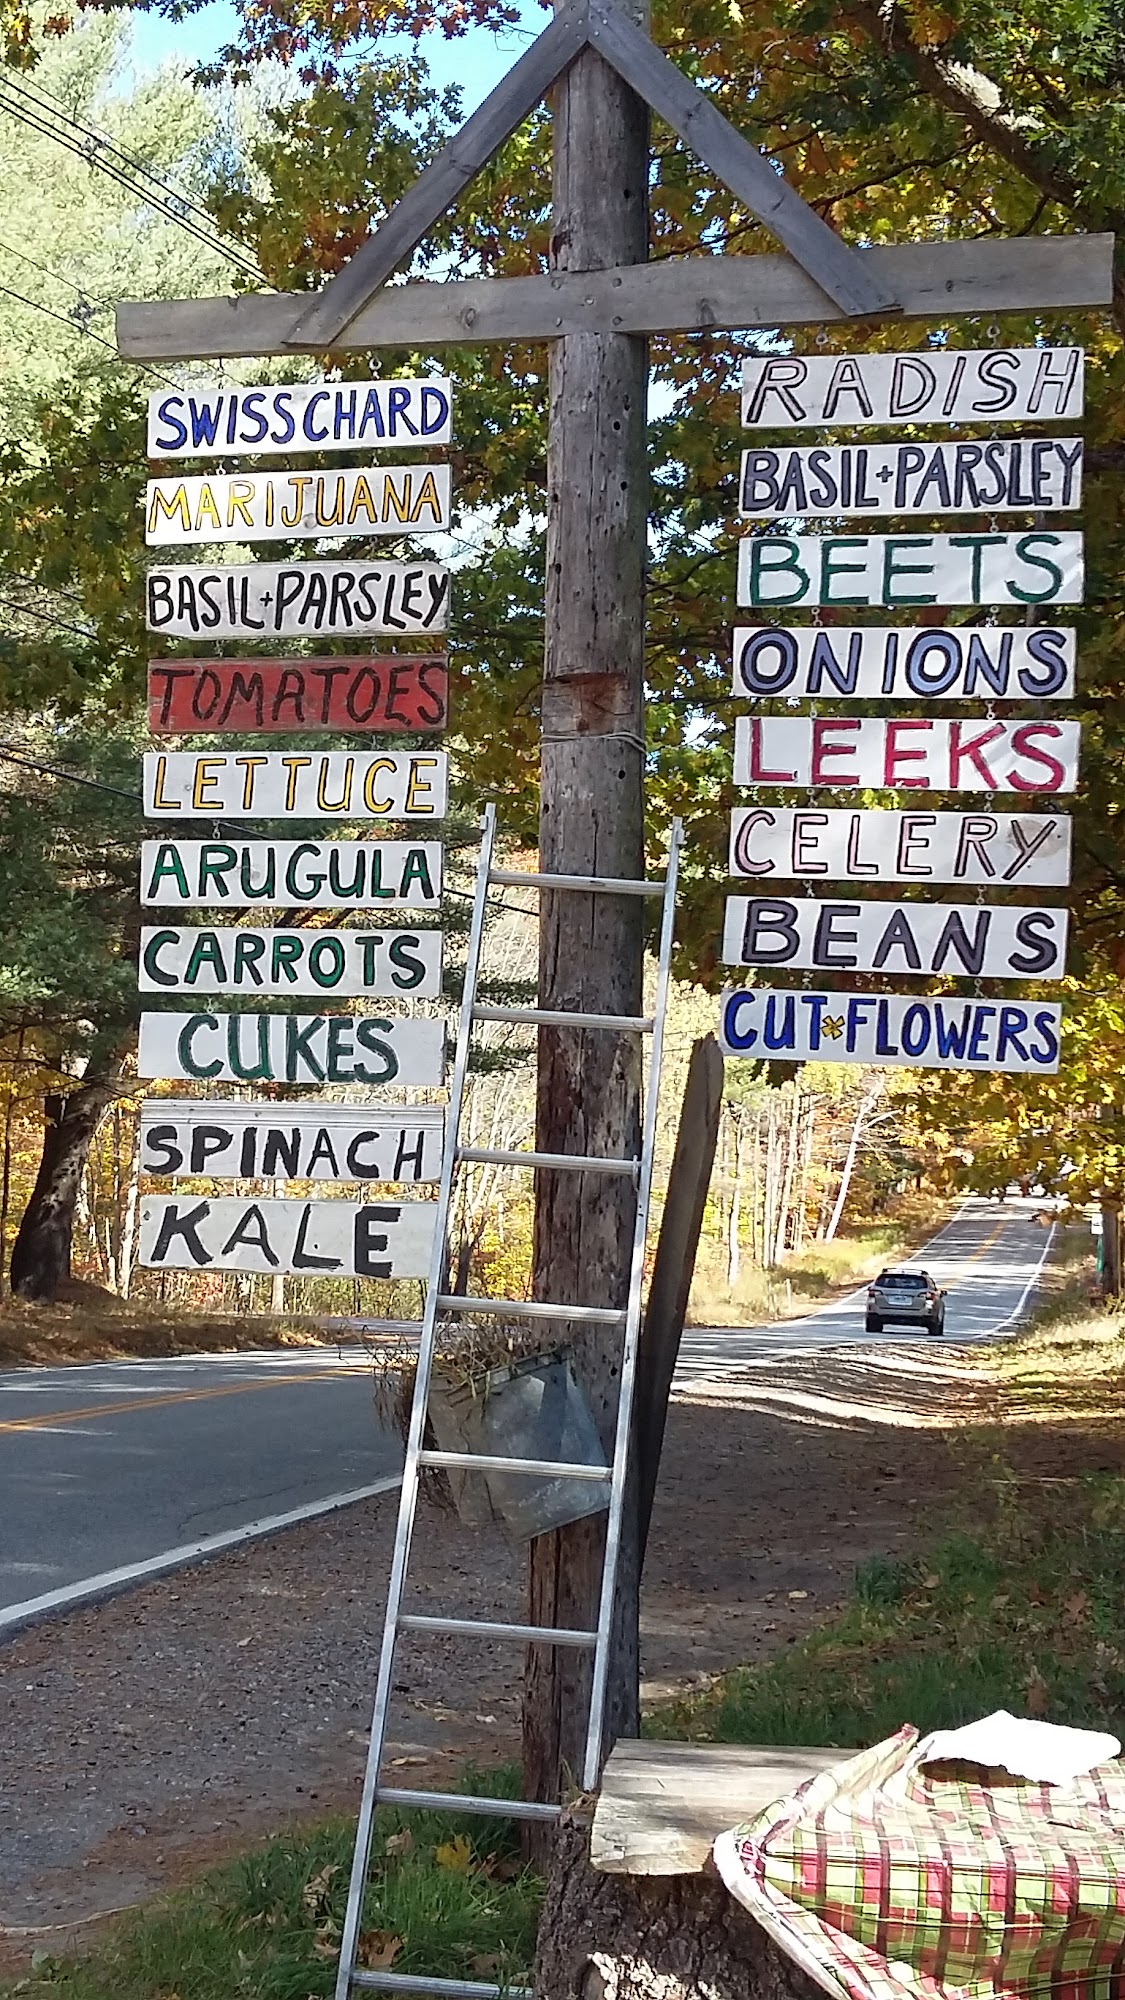 SWISS CHARD
MARIJUANA
BASIL+PARSLEY
TOMATOES
LETTUCE
ARUGULA
CARROTS
CUKES
SPINACH
KALE
RADISH
BASIL+PARSLEY
BEETS
ONIONS
LEEKS
CELERY
BEANS
CUT FLOWERS